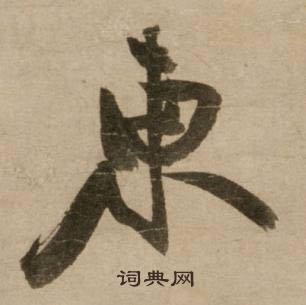 東
词典网